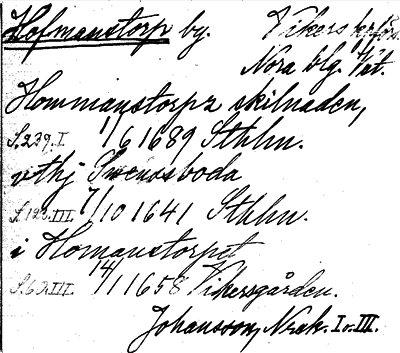 Hofmanstorp by. Vikers krfös.
Nora blg. Väst.
Hommanstorpz skilnaden,
S.239.I 1/6 1689 Sthlm.
vthj Swensboda
S.122.III. 7/10 1641 Sthlm.
i Homanstorpet
S.63.III. 14/1 1658 Vikersgården.
Johansson, Norask. I o. III.